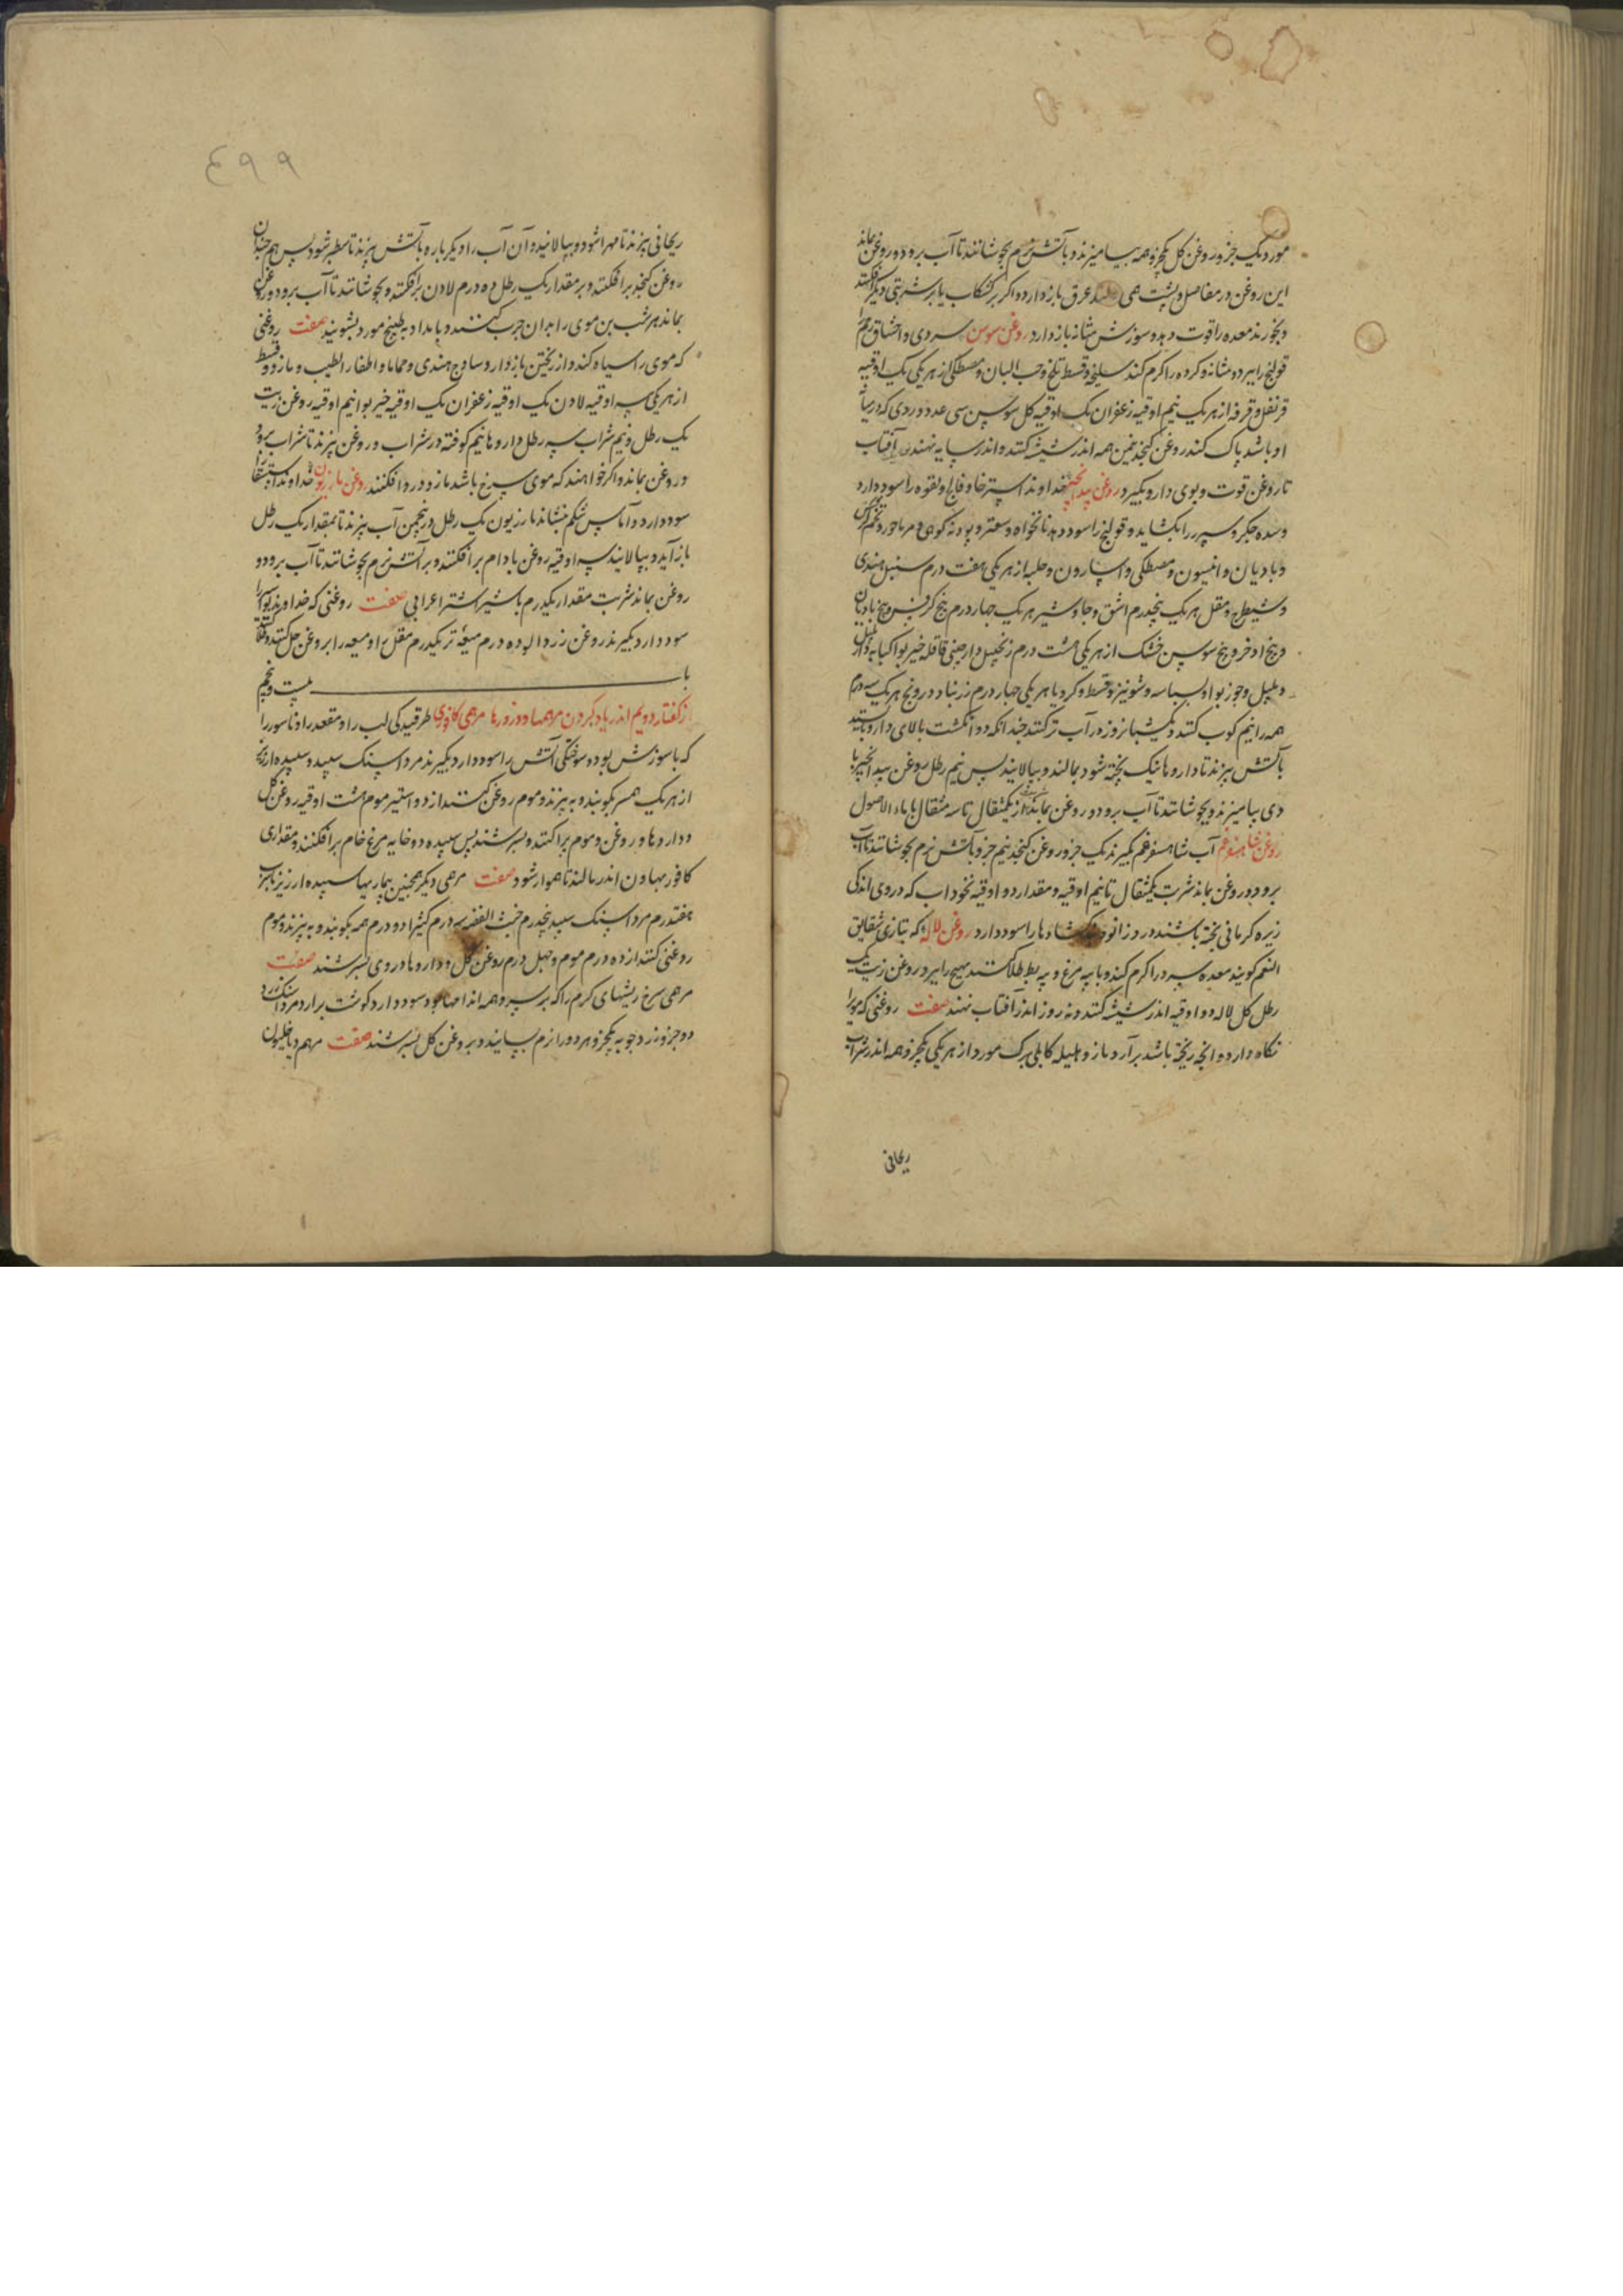 مورد یک جزو روغن کل یکجزو همه بیامیزند و باتش نرم بجوشانند تا آب برود و روغن بماند
این روغن در مفاصل و پشت همی عرق بازدارد و اکر بر کشکاب یا بر شربتی دیکر افکنند
و بخورند معده را قوت دهد و سوزش مثانه بازدارد روغن سوسن سردی و اختناق رحم را
قولنج را ببرد و مثانه و کرده را کرم کند سلیخه و قسط تلخ و حب البان و مصطکی از هر یکی یک اوقیه
قرنفل و قرفه از هر یک نیم اوقیه زعفران یک اوقیه کل سوسن سی عدد و زردی که در میان
او باشد پاک کنند روغن کنجد همه اندر شیشه کنند و اندر سایه نهند آفتاب
تا روغن قوت و بوی دارو بکیرد روغن بیدانجیر خداوند استرخا و فالج و لقوه را سود دارد
و سده جکر و سپرز را بکشاید و قولنج را سود دهد نانخواه و سعتر و پودنه کوهی و مرماحور و تخم کرفس
و بادیان و انیسون و مصطکی و اسارون و حلبه از هر یکی هفت درم سنبل هندی
و شیطرج و مقل هر یک پنجدرم اشق و جاوشیر هر یک چهار درم بیخ کرفس و بیخ بادیان
و بیخ اذخر و بیخ سوسن خشک از هر یکی هشت درم زنجبیل دارچینی قاقله خیربوا کبابه دارپلپل
و پلپل و جوزبوا و بسباسه و شونیز و قسط و کرویا هر یکی چهار درم زرنباد درونج هر یک سه درم
همه را نیم کوب کنند و یکشبانروز در آب تر کنند چندانکه دو انکشت بالای دارو بایستد
باتش بپزند تا داروها نیک پخته شود بمالند و بپالایند پس نیم رطل روغن بیدانجیر با
وی بیامیزند و بجوشانند تا آب برود و روغن بماند از یکمثقال تا سه مثقال با ماء الاصول
روغن شاهسفرغم آب شاهسفرغم بکیرند یک جزو روغن کنجد نیم جزو باتش نرم بجوشانند تا آب
برود و روغن بماند شربت یکمثقال تا نیم اوقیه و مقدار دو اوقیه نخوداب که در وی اندکی
زیره کرمانی پخته باشند درد زانو را سود دارد روغن لاله که بتازی شقایق
النعم کویند معده سرد را کرم کند و با پیه مرغ و پیه بط طلا کنند ببرد روغن زیت یک
رطل کل لاله دو اوقیه اندر شیشه کنند و نه روز اندر آفتاب نهند صفت روغنی که موی را
نکاه دارد و انچه ریخته باشد برآرد مازو هلیله کابلی برک مورد از هر یکی یکجزو همه اندر شراب
ریحانی
٤٩٩
ریحانی بپزند تا مهرا شود و بپالایند و آن آب را دیکر باره باتش بپزند تا سطبر شود پس هم چندان
روغن کنجد برافکنند و بر مقدار یک رطل ده درم لادن برافکنند و بجوشانند تا آب برود و روغن
بماند هر شب بن موی را بدان چرب کنند و بامداد به طبیخ مورد بشویند صفت روغنی
که موی را سیاه کند و از ریختن بازدارد ساذج هندی و حماما و اظفار الطیب و مازو و قسط
از هر یکی سه اوقیه لادن یک اوقیه زعفران یک اوقیه خیربوا نیم اوقیه روغن زیت
یک رطل و نیم شراب سه رطل داروها نیم کوفته در شراب و روغن بپزند تا شراب برود
و روغن بماند و اکر خواهند که موی سرخ باشد مازو دور افکنند روغن مازریون خداوند استسقا را
سود دارد و آماس شکم بنشاند مازریون یک رطل در پنجمن آب بپزند تا بمقدار یک رطل
بازآید و بپالایند سه اوقیه روغن بادام برافکنند و بر آتش نرم بجوشانند تا آب برود و
روغن بماند شربت مقدار یکدرم با شیر اشتر اعرابی صفت روغنی که خداوند بواسیر را
سود دارد بکیرند روغن زردالو ده درم میعه تر یکدرم مقل را و میعه را بروغن حل کنند
باب بیست و پنجم
از کفتار دویم اندر یاد کردن مرهمها و ذرورها مرهمی کافوری طرقیدکی لب را و مقعد را و ناسور را
که با سوزش بود و سوختکی آتش را سود دارد بکیرند مرداسنک سپید و سپیده ارزیز
از هر یک همسر بکوبند و به بپزند و موم روغن کنند از دو استیر موم هشت اوقیه روغن کل
و داروها و روغن و موم براکنند و بسرشند پس سپیده دو خایه مرغ خام برافکنند و مقداری
کافور بهاون اندر مالند تا هموار شود صفت مرهمی دیکر همچنین بیاریها سپیده ارزیز
هفتدرم مرداسنک سپید پنجدرم خبث الفضه سه درم کتیرا دو درم همه بکوبند و به بپزند و موم
روغنی کنند از ده درم موم و چهل درم روغن کل و داروها در وی بسرشند صفت
مرهمی سرخ ریشهای کرم را که بر سر و همه اندامها بود سود دارد کوشت برارد مرداسنک زرد
دو جزو زردچوبه یکجزو هر دو را نرم بسایند و بروغن کل بسرشند صفت مرهم دیاخلیون